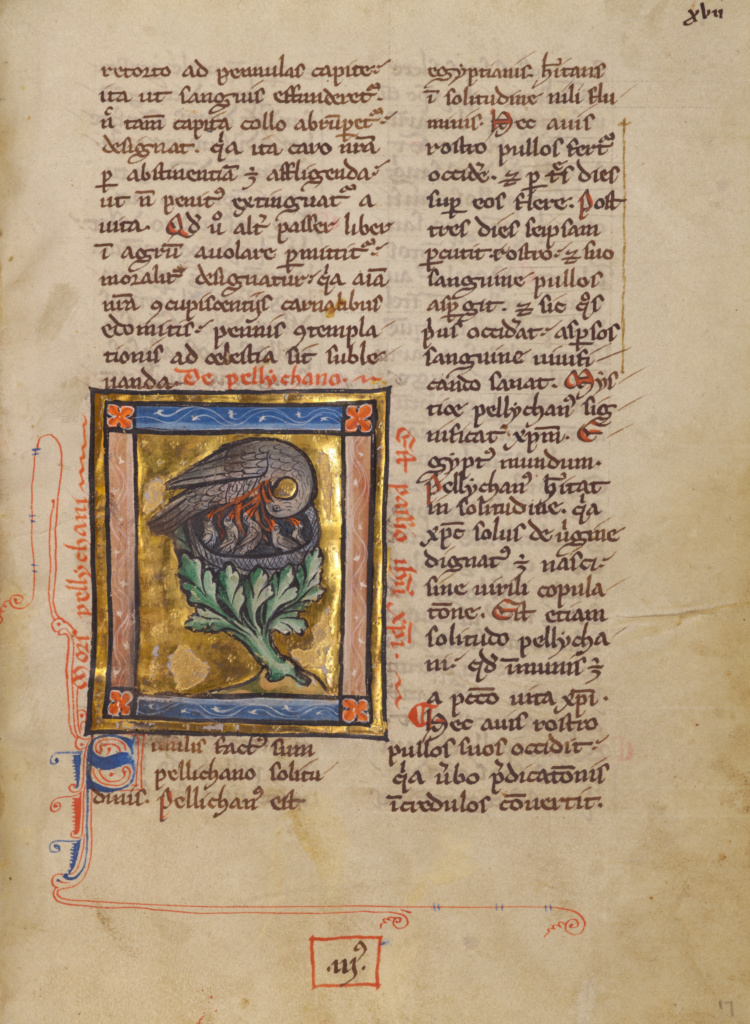 xvii
retorto ad pennulas capite.
ita ut sanguis effunderet᷑.
n̄ tam̄ capita collo abrūpet᷑.
designat. q̇a ita caro nr̄a
ꝑ abstinentiā ⁊ affligenda.
ut n̄ penit᷒ extinguat᷑ a
uita. Qd̄ ů alt᷑ passer liber
ī agrū auolare ꝑmittit᷑.
moralit᷑ designatur. q̇a aīa
nr̄a ꝯcupiscentijs carnalibus
edomitis. pennis ꝯtempla
tionis ad celestia sit suble
uanda. De pellychano.
Mors pellychani
est passio ih̄u xp̄i.
Similis fact᷒ sum
pellichano solitu
dinis. Pellichan᷒ est
egyptianis. h̄itans
ī solitudine nili flu
minis. Hec auis
rostro pullos fert᷑
occidẽ. ⁊ ꝑ t̄s dies
suꝑ eos flere. Post
tres dies seipsam
ꝑcutit rostro. ⁊ suo
sanguine pullos
asꝑgit. ⁊ sic q̊s
pi᷒us occidat. asꝑsos
sanguine uiuifi
cando sanat. Mys
tice pellychan᷒ sig
nificat xp̄m. E
gypt᷒ mundum.
Pellychan᷒ h̄itat
in solitudine. q̇a
xp̄c solus de u̇gine
dignat᷒ ⁊ nasci.
sine uirili copula
tōne. Est etiam
solitudo pellycha
ni. qd̄ īmunis ⁊
a pccō uita xp̄i.
Hec auis rostro
pullos suos occidit.
q̇a u̇bo p̄dicatōnis
īcredulos cōuertit.
.iij᷒.
17